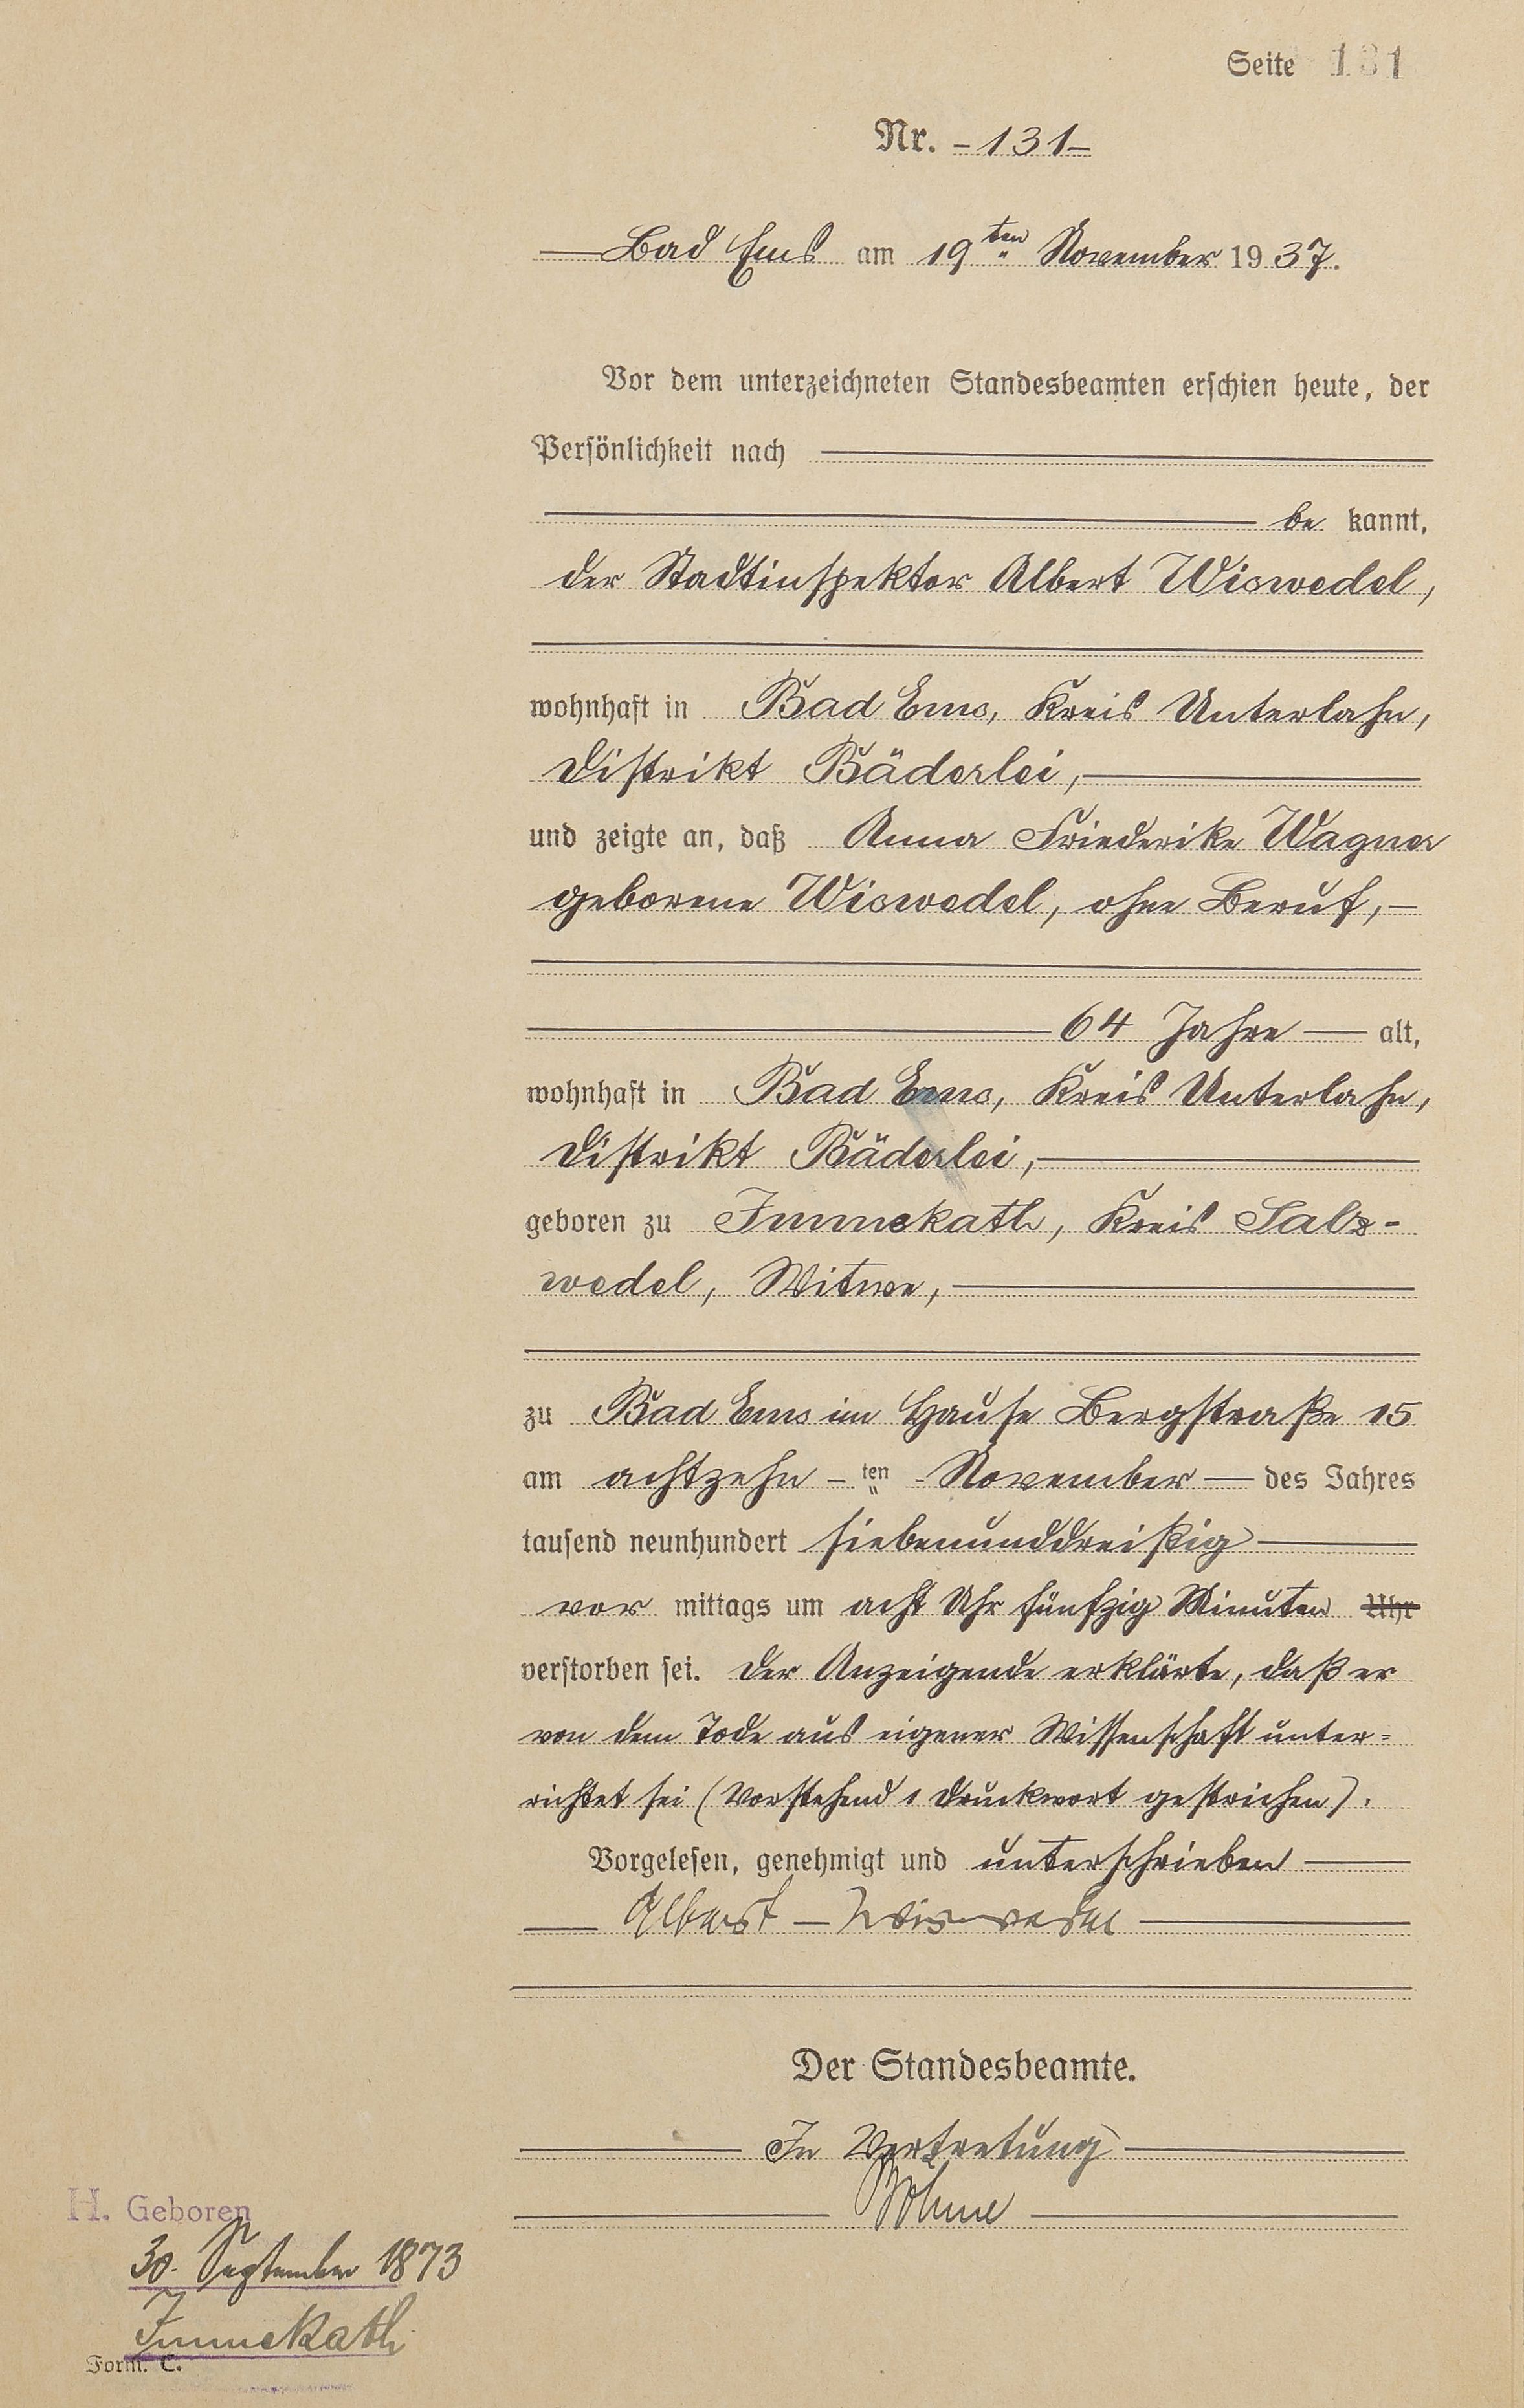 Seite 131
Nr. - 131 -
Bad Ems am 19ten November 1937.
Vor dem unterzeichneten Standesbeamten erschien heute, der
Persönlichkeit nach
be kannt,
der Stadtinspektor Albert Wiswedel,
wohnhaft in Bad Ems, Kreis Unterlahn,
Distrikt Bäderlei,
und zeigte an, daß Anna Friederike Wagner
geborene Wiswedel, ohne Beruf,
64 Jahre alt,
wohnhaft in Bad Ems, Kreis Unterlahn,
Distrikt Bäderlei,
geboren zu Immekath, Kreis Salz-
wedel, Witwe,
zu Bad Ems im Hause Bergstraße 15
am achtzehn - ten - November des Jahres
tausend neunhundert siebenunddreißig
vor mittags um acht Uhr fünfzig Minuten Uhr
verstorben sei. Der Anzeigende erklärte, daß er
von dem Tode aus eigener Wissenschaft unter-
richtet sei (Vorstehend 1 Druckwort gestrichen).
Vorgelesen, genehmigt und unterschrieben
Albert Wiswedel
Der Standesbeamte.
In Vertretung
Böhme
H. Geboren
30. September 1873
Immekath
Form. C.